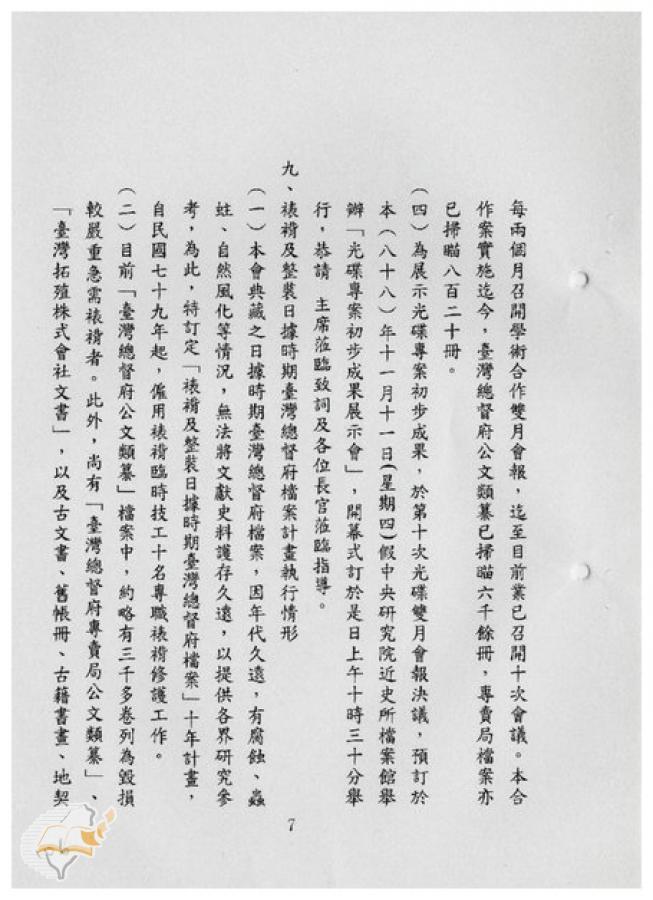 每兩個月召開學術合作雙月會報，迄至目前業已召開十次會議。本合
作案實施迄今，臺灣總督府公文類纂已掃瞄六千餘冊，專賣局檔案亦
已掃瞄八百二十冊。
（四）為展示光碟專案初步成果，於第十次光碟雙月會報決議，預訂於
本（八十八）年十一月十一日(星期四)假中央研究院近史所檔案館舉
辦「光碟專案初步成果展示會」，開幕式訂於是日上午十時三十分舉
行，恭請　主席蒞臨致詞及各位長官蒞臨指導。
九、裱褙及整裝日據時期臺灣總督府檔案計畫執行情形
（一）本會典藏之日據時期臺灣總督府檔案，因年代久遠，有腐蝕、蟲
蛀、自然風化等情況，無法將文獻史料護存久遠，以提供各界研究參
考，為此，特訂定「裱褙及整裝日據時期臺灣總督府檔案」十年計畫，
自民國七十九年起，僱用裱褙臨時技工十名專職裱褙修護工作。
（二）目前「臺灣總督府公文類纂」檔案中，約略有三千多卷列為毀損
較嚴重急需裱褙者。此外，尚有「臺灣總督府專賣局公文類纂」、
「臺灣拓殖株式會社文書」，以及古文書、舊帳冊、古籍書畫、地契
7